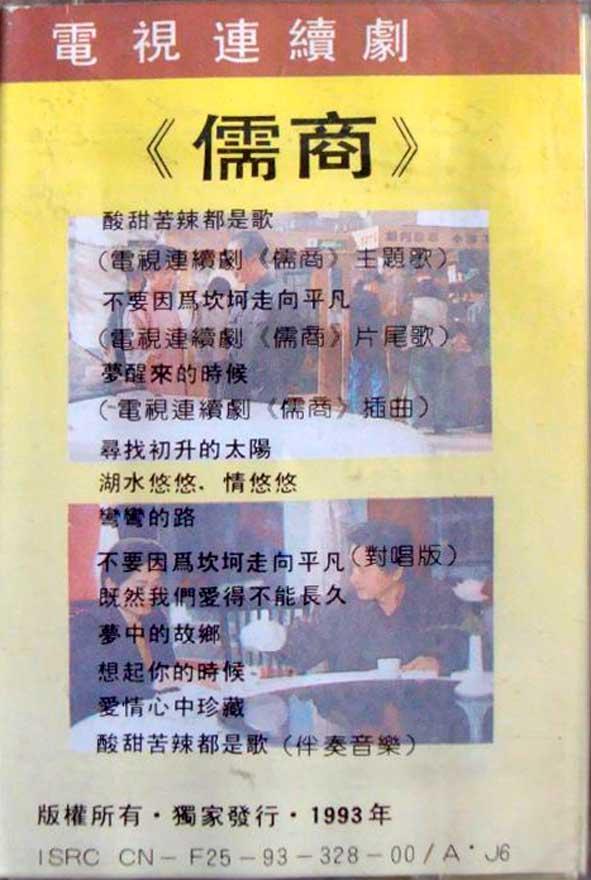 電視連續劇
《儒商》
酸甜苦辣都是歌
(電視連續劇《儒商》主題歌)
不要因爲坎坷走向平凡
(電視連續劇《儒商》片尾歌)
夢醒來的時候
(電視連續劇《儒商》插曲)
尋找初升的太陽
湖水悠悠．情悠悠
彎彎的路
不要因爲坎坷走向平凡(對唱版)
既然我們愛得不能長久
夢中的故鄉
想起你的時候
愛情心中珍藏
酸甜苦辣都是歌(伴奏音樂)
版權所有·獨家發行·1993年
ISRC CN-F25-93-328-00/A·J6